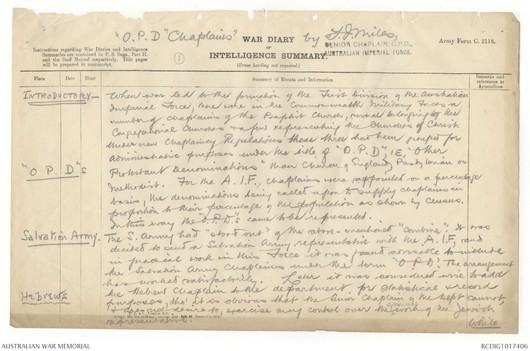 "O.P.D" Chaplains" WAR DIARY by F.J. Miles
or
INTELLIGENCE SUMMARY.
(Erase heading not required.)
Instructions regarding War Diaries and Intelligence
Summaries are contained in F. S. Regs., Part II.
and the Staff Manual respectively. Title pages
will be prepared in manuscript.
(1)
SENIOR CHAPLAIN, O.P.D.,
AUSTRALIAN IMPERIAL FORCE.
Army Form C. 2118.
Place Date Hour Summary of Events and Information Remarks and references to Appendices
INTRODUCTORY— When war led to the formation of the First Division of the Australian
Imperial Force, there were in the Commonwealth Military Forces a
number of chaplains of the Baptist Church, several belonging to the
Congregational Churches & a few representing the Churches of Christ
Under new Chaplaincy Regulations these three had been grouped for
"O.P.D"s administrative purposes under the title of "O.P.D" IE, "Other
Protestant Denominations" than Church of England, Presbyterian or
Methodist. For the A.I.F., chaplains were appointed on a percentage
basis, the denominations being called upon to supply chaplains in
proportion to their percentage of the population as shown by census.
In this way the O.P.D's came to be represented.
Salvation Army. The S. Army had "stood out" of the above-mentioned "combine". It was
decided to send a Salvation Army representative with the A.I.F, and
in practical work in this Force it was found advisable to include
the Salvation Army Chaplaincies under the term "O.P.D". The arrangement
has worked satisfactorily. Later it was considered wise to add
HEBREWS the Hebrew Chaplain to the department, for statistical & record
purposes, tho' it is obvious that the Senior Chaplain of the Dept cannot,
& does not desire to, exercise any control over the work of the Jewish
representative. While
AUSTRALIAN WAR MEMORIAL
RCDIG1017406